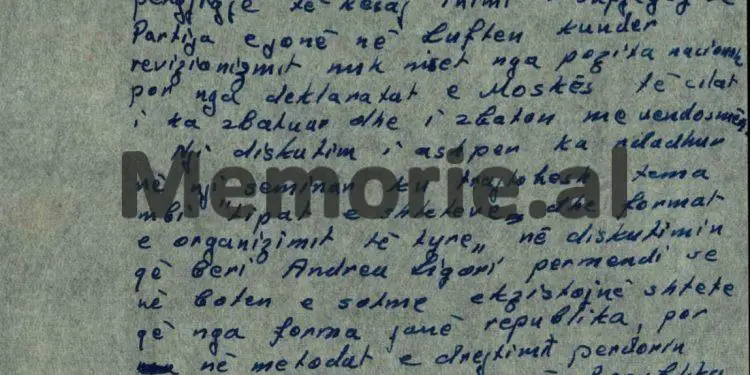 përgjigje të kësaj
Partija e jonë në Luftën kundër
revizionizmit nuk niset nga pozita nacionale
por nga deklaratat e Moskës të cilat
i ka zbatuar dhe i zbaton me vendosmëri
Një diskutim i ashpër ka ndodhur
në një seminar ku trajtohesh tema
mbi "tipat e shteteve„ dhe format
e organizimit të tyre„ në diskutimin
që beri Andrea Ligori permendi se
në boten e sotme ekzistojnë shtete
që nga forma janë republika, por
në metodat e drejtimit perdorin
Memorie.al